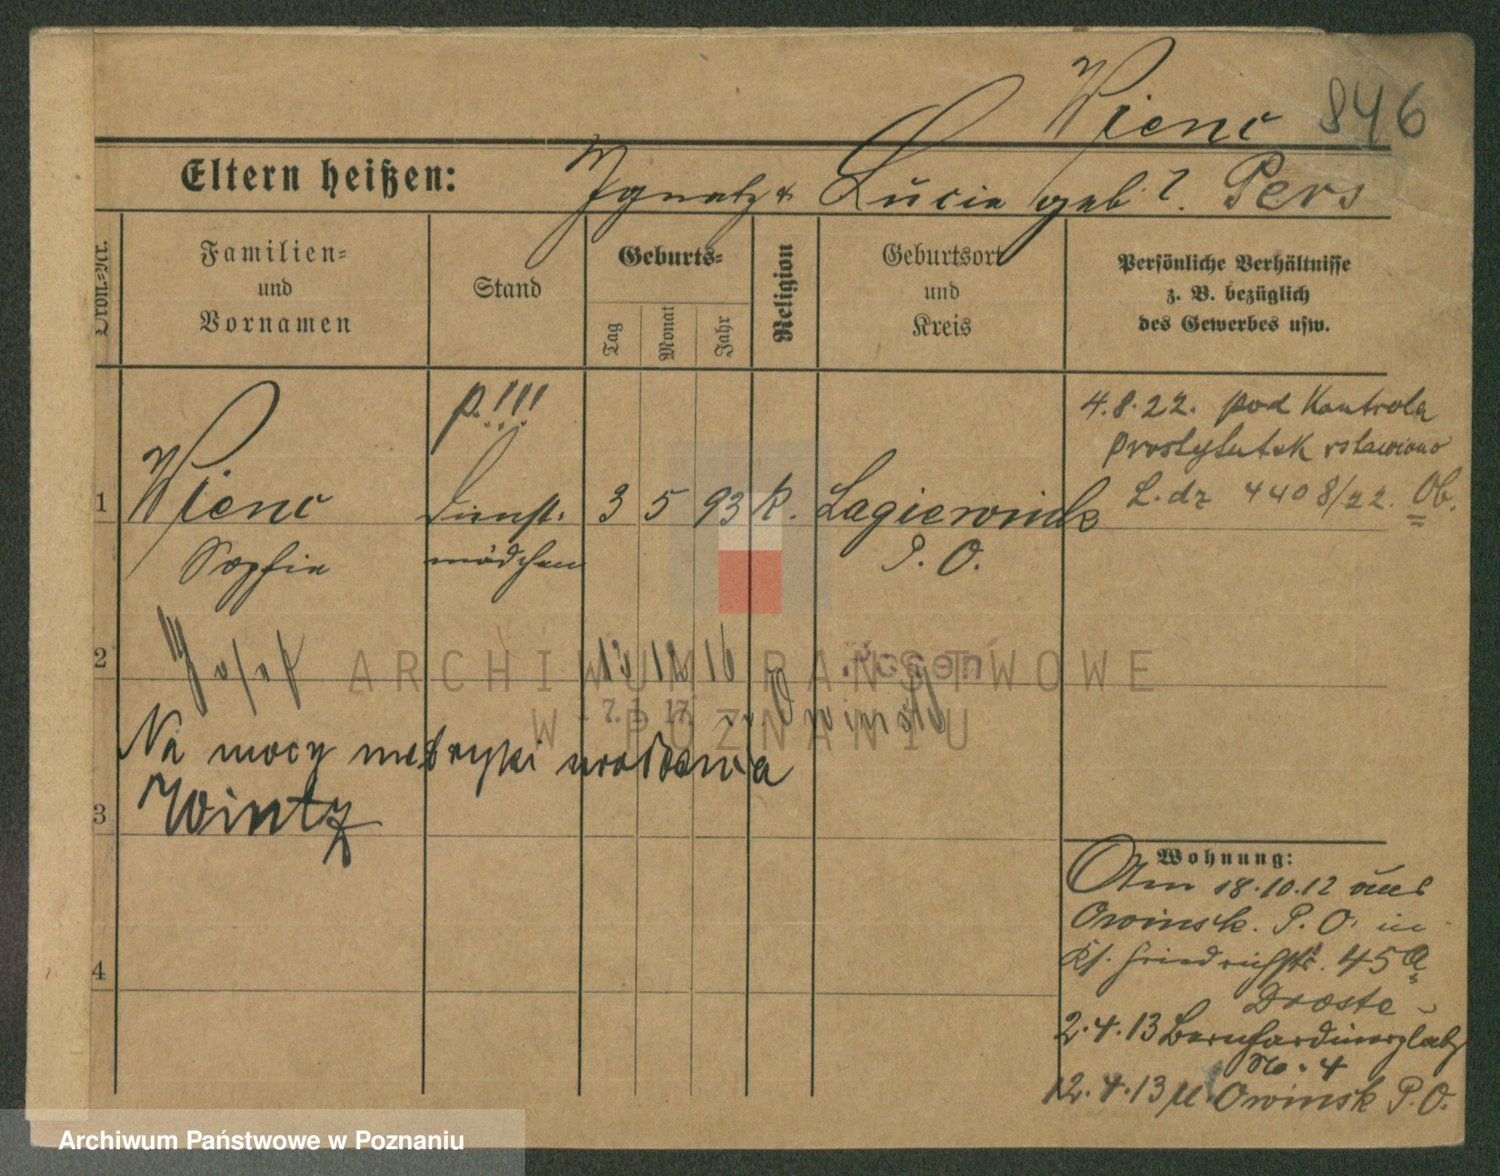 Wienc 846
Eltern heißen: Ignatz & Lucia geb. ? Pers
Ordn.-Nr.
Familien-
und
Vornamen
Stand
Geburts-
Tag
Monat
Jahr
Religion
Geburtsort
und
Kreis
Persönliche Verhältnisse
z. B. bezüglich
des Gewerbes usw.
p.!!!
4.8.22. pod Kontrola
prostytutek
L. dz 4408/22. Ob.
1 Wienc Dienst- 3 5 93 k. Lagiewnick
Sophie mädchen P. O.
2 Josef 13 12 16 Posen
7. 1. 17. Owinsk
Na mocy metryki
3 Wintz
4
Wohnung:
Am 18.10.12 aus
Owinsk. P. O. in
Kl. Friedrichstr. 45a
Droste
2.4.13 Bernhardinerplatz
No. 4
12.4.13 n. Owinsk P.O.
ARCHIWUM PAŃSTWOWE
W POZNANIU
Archiwum Państwowe w Poznaniu